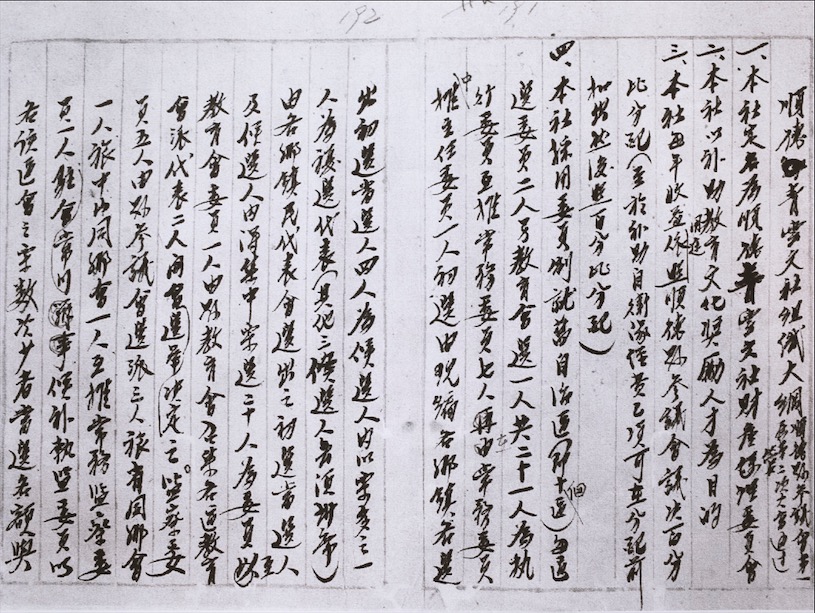 192
191
順德青雲文社組織大綱 順德縣參議會第一屆第二次大會通過
一、本社定名為順德青雲文社財產保管委員會
二、本社以補助教育文化獎勵人才為目的
三、本社每年收益依照順德縣參議會議決百分
比分配(至於補助自衛隊經費乙項可在分配前
扣出然後照百分比分配)
四、本社採用委員制就舊自治區(即十區)每區
選委員二人另教育會選一人共二十一人為執
行委員互推常務委員七人再由常務委員
中推主任委員一人初選由現屬各鄉鎮各選
出初選當選人四人為候選人內以票多之一
人為複選代表(其他三候選人毋須出席)
由各鄉鎮民代表會選出之初選當選人
及候選人由區集中票選二十人為委員
教育會委員一人由縣教育會召集各區教育
會派代表二人開會選舉決定之監察委
員五人由縣參議會選派三人旅省同鄉會
一人旅中山同鄉會一人互推常務監察委
員一人駐會常川辦事候補執監委員以
各該區會之票數次少者當選名額與